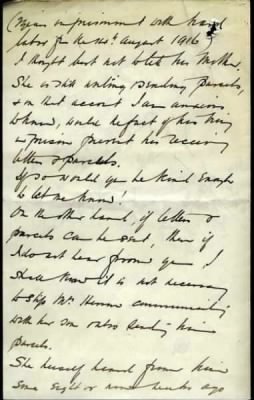 (2 years imprisonment with hard
labor fr the 14th August 1916)
I thought best not to tell his Mother.
She is still writing & sending parcels,
& on that account I am anxious
to know, would the fact of his being
in prison prevent his receiving
letters & parcels.
If so would you be kind enough
to let me know!
On the other hand, if letters &
parcels can be sent, then if
I do not hear from you, I
shall know it is not necessary
to stop Mrs communicating
with her son or to sending him
parcels.
She herself heard from him
some eight or nine weeks ago